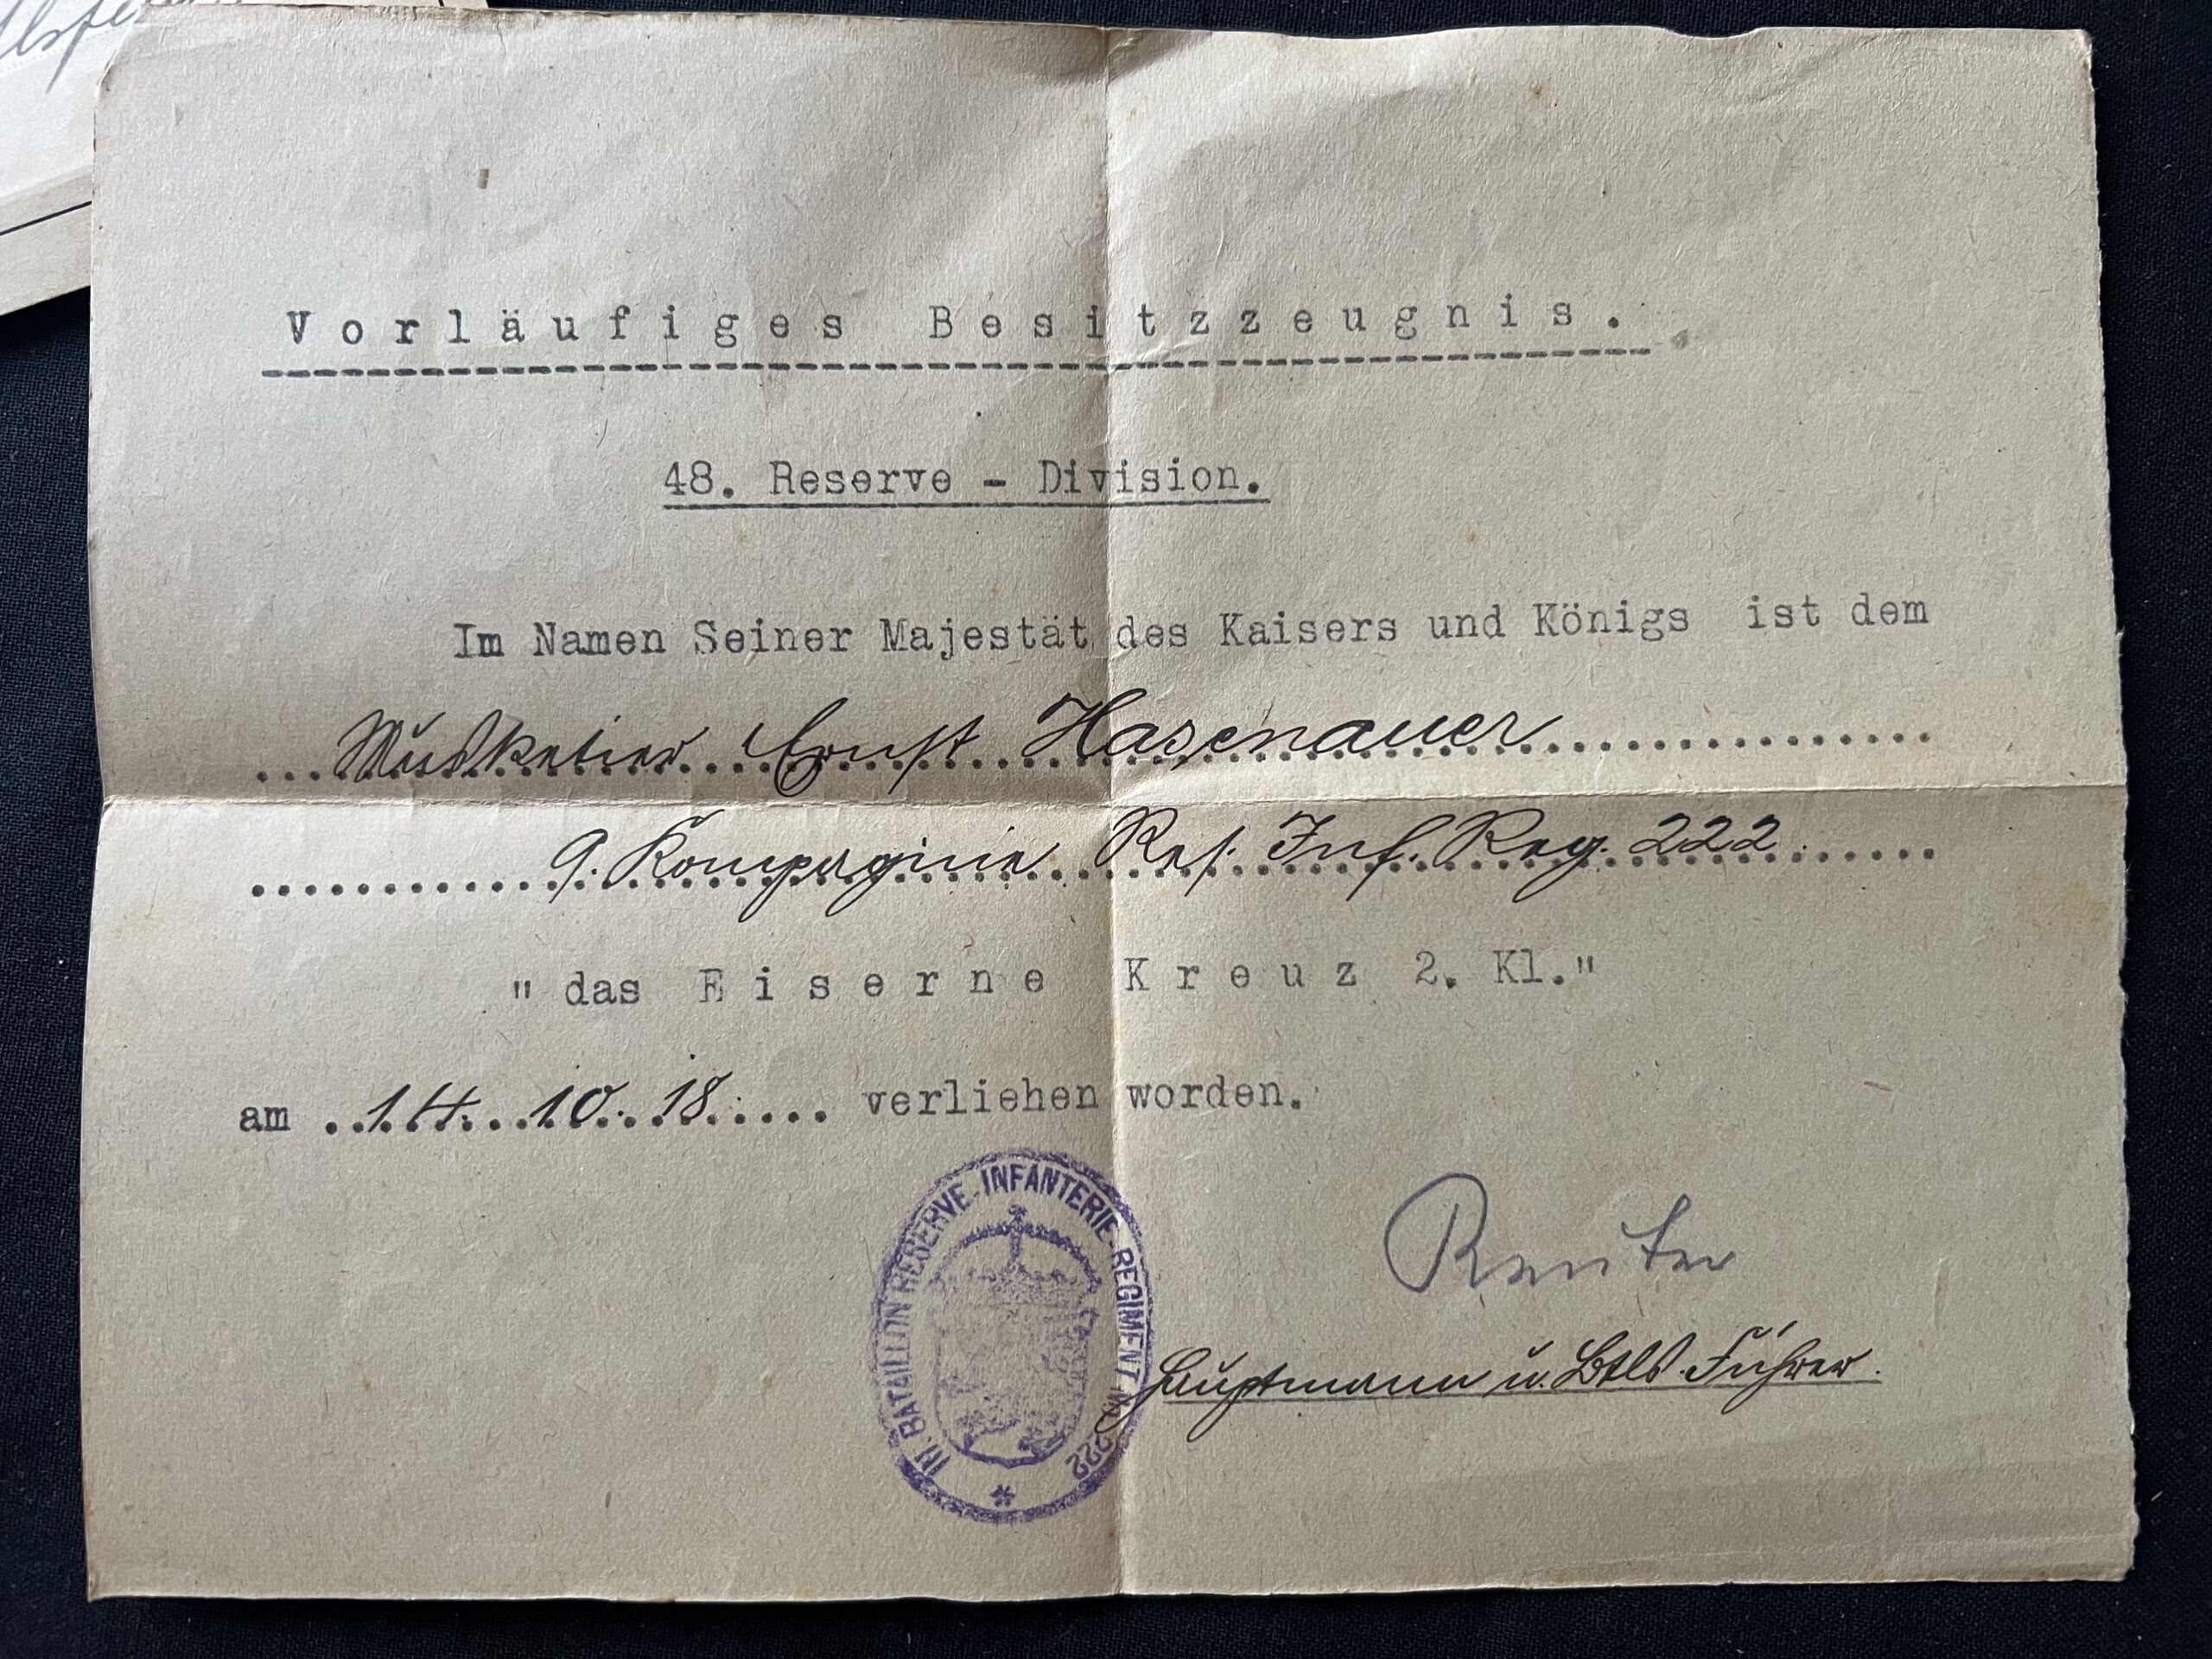 Vorläufiges Besitzzeugnis.
48. Reserve - Division.
Im Namen Seiner Majestät des Kaisers und Königs ist dem
Musketier Ernst Hasenauer
9. Kompagnie Res. Inf. Reg. 222.
"das Eiserne Kreuz 2. Kl."
am 14. 10. 18. verliehen worden.
III. BATAILLON RESERVE-INFANTERIE-REGIMENT No 222
Reuter
Hauptmann u. Btls. Führer.